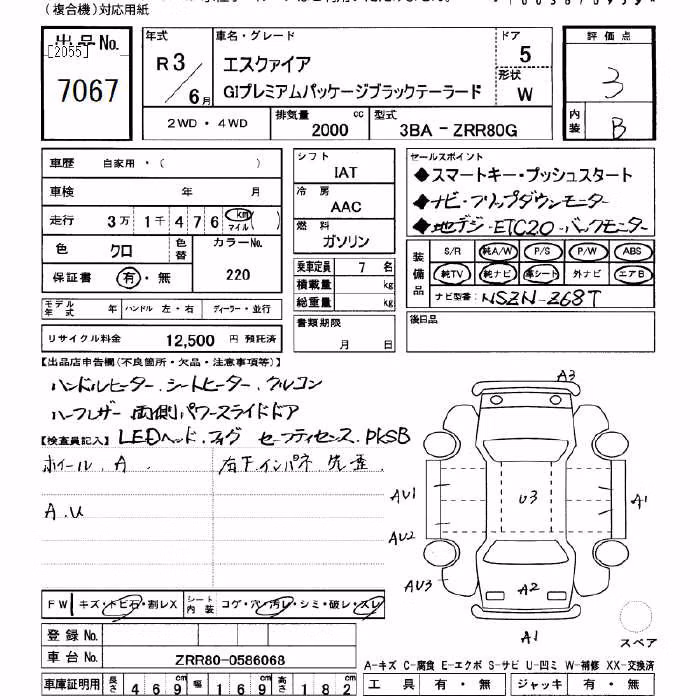 (複合機)対応用紙
出品No.
[2055]
7067
年式
R 3 / 6 月
車名・グレード
エスクァイア
GIプレミアムパッケージブラックテーラード
ドア
5
形状
W
2WD・4WD
排気量
2000 cc
型式
3BA - ZRR80G
評価点
3
内装
B
車歴 自家用・( )
車検 年 月
走行 3万 1千 4 7 6 km マイル ( )
色 クロ
色替
カラーNo.
220
保証書 有・無
シフト
IAT
冷房
AAC
燃料
ガソリン
乗車定員 7 名
積載量 kg
総重量 kg
セールスポイント
◆スマートキー・プッシュスタート
◆ナビ・フリップダウンモニター
◆地デジ・ETC2.0・バックモニター
装備品
S/R 純A/W P/S P/W ABS
純TV 純ナビ 革シート 外ナビ エアB
ナビ型番: NSZN-Z68T
モデル年式 年 ハンドル 左・右 ディーラー・並行
リサイクル料金 12,500 円 預託済
書類期限
月 日
後日品
【出品店申告欄(不良箇所・欠品・注意事項等)】
ハンドルヒーター、シートヒーター、クルコン
ハーフレザー 両側パワースライドドア
【検査員記入】 LEDヘッド、フォグ セーフティセンス、PKSB
ホイール、A 右下インパネ
A.U
A3
AU1
AU2
AU3
U3
A1
A2
A1
スペア
FW キズ・トビ石・割レX
シート内装 コゲ・穴・汚レ・シミ・破レ・スレ
登録No.
車台No. ZRR80-0586068
車庫証明用 長さ 469 cm 幅 169 cm 高さ 182 cm
A-キズ C-腐食 E-エクボ S-サビ U-凹ミ W-補修 XX-交換済
工具 有・無 ジャッキ 有・無